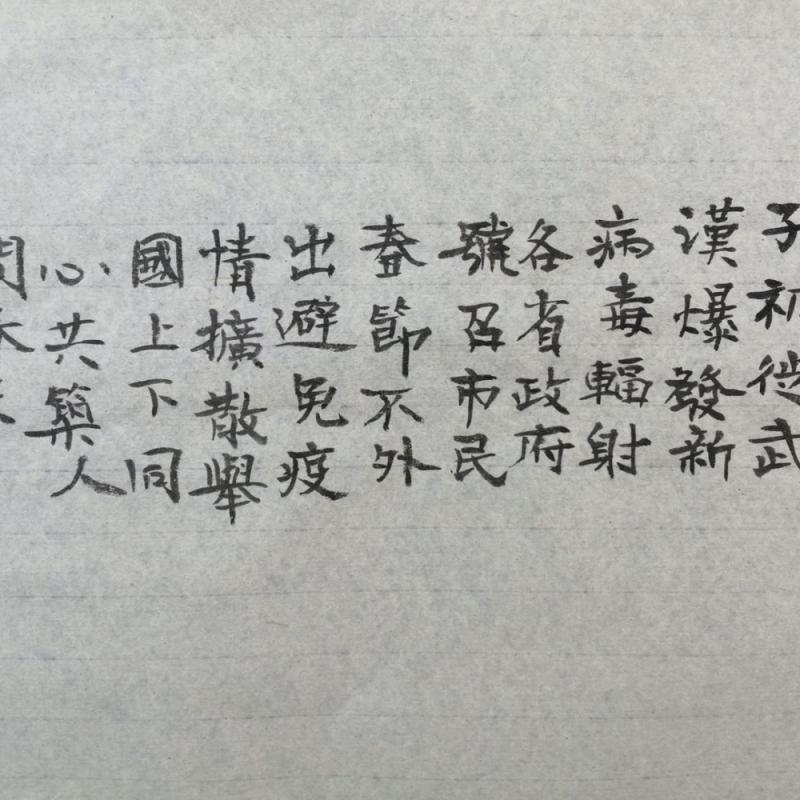 子初從武
漢爆發新
病毒輻射
各省政府
號召市民
春節不外
出避免疫
情擴散舉
國上下同
心共築人
間